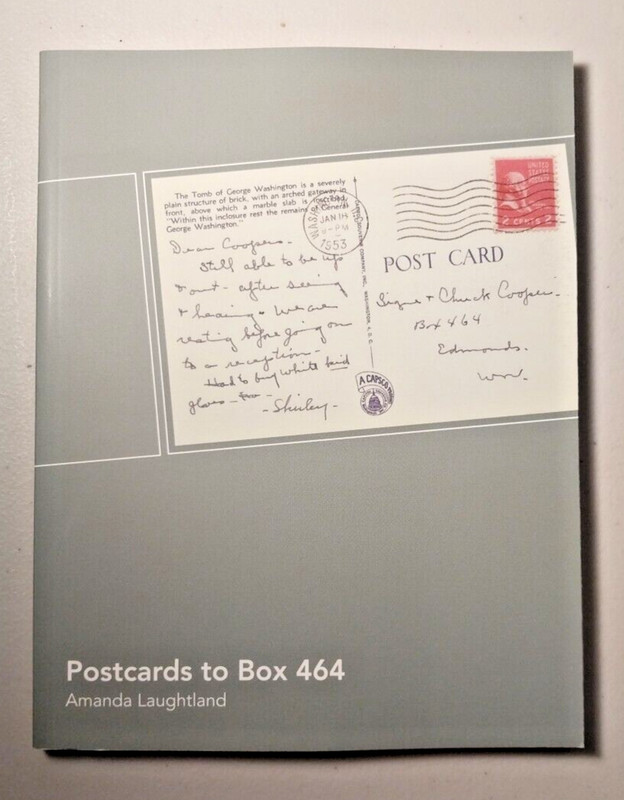 The Tomb of George Washington is a severely
plain structure of brick, with an arched gateway in
front, above which a marble slab is inscribed,
"Within this inclosure rest the remains of General
George Washington."
Dear Coopers -
Still able to be up
& out - after seeing
& hearing. We are
resting before going on
to a reception -
Had to buy white kid
gloves -
- Shirley -
WASHINGTON
JAN 18
PM
1953
UNITED
STATES
2 CENTS 2
POST CARD
Signe & Chuck Cooper -
Box 464
Edmonds.
Wn.
A CAPSCO
Postcards to Box 464
Amanda Laughtland